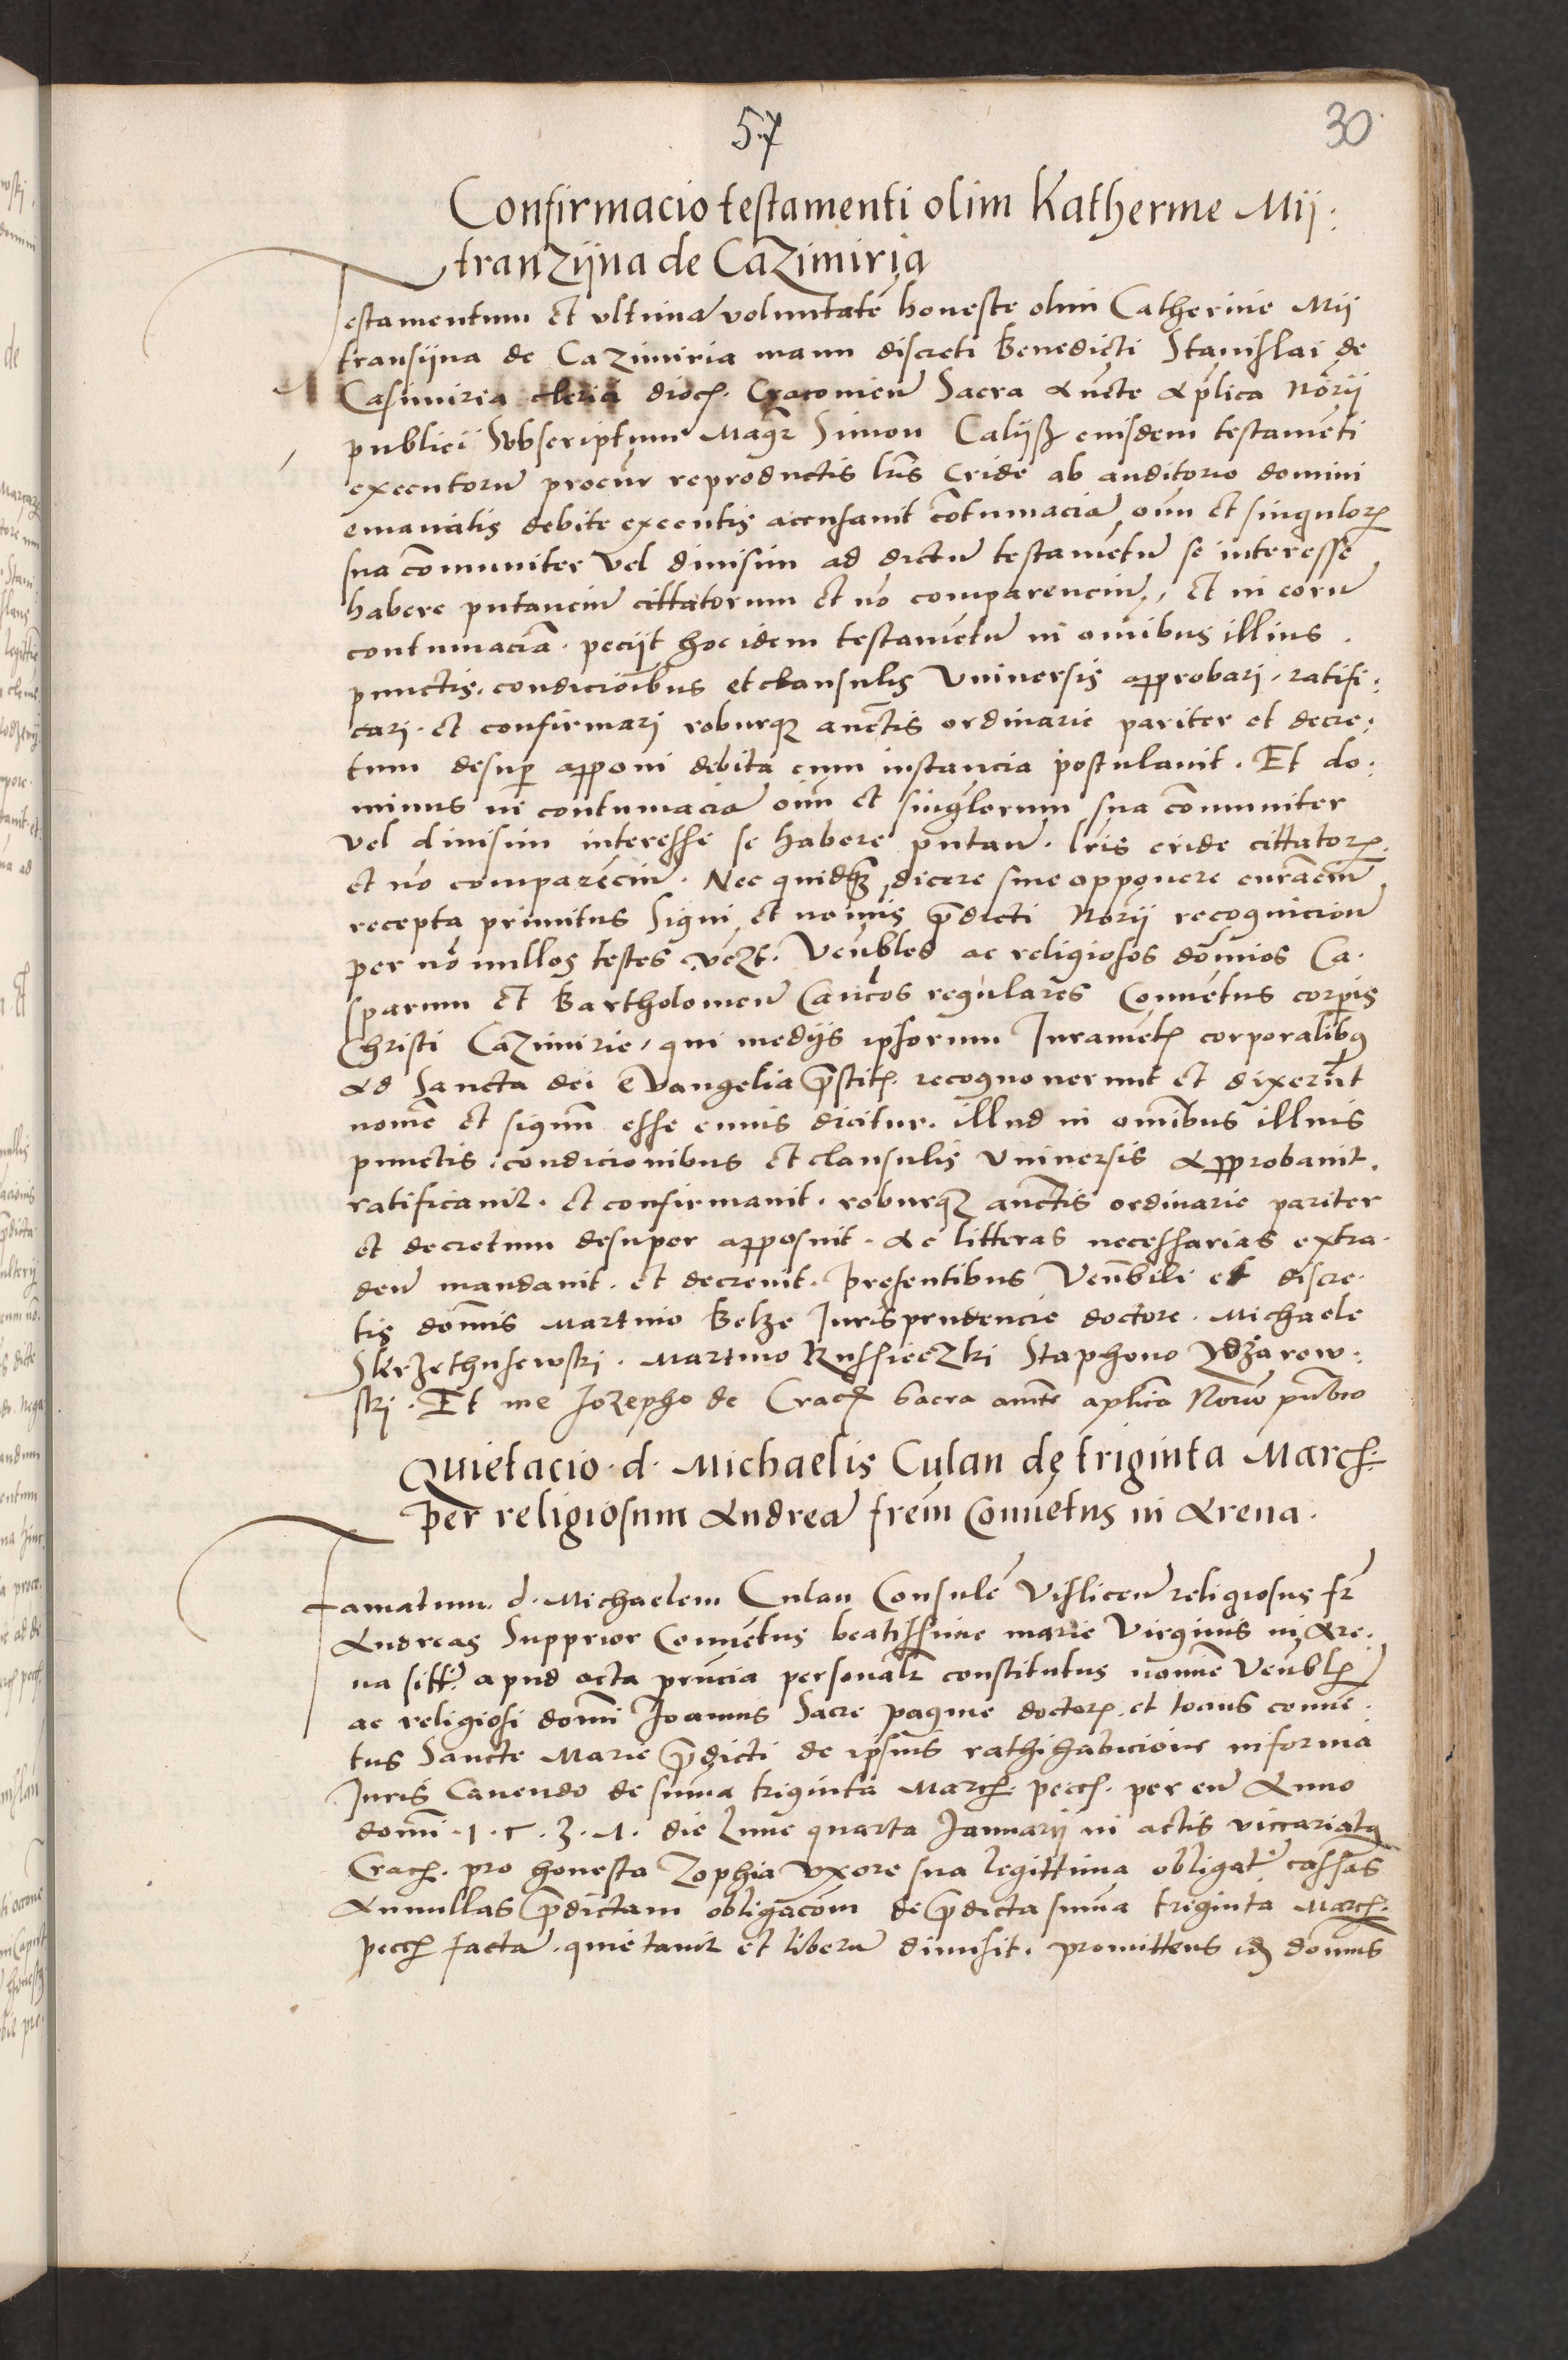 57
30
Confirmacio testamenti olim Katherine Mij:
tranzijna de Cazimiria
Testamentum et vltimã voluntatẽ honeste olim Catherine Mij
transijna de Cazimiria manu discreti Benedicti Stanislai de
Casimiria clerici dioc. Cracouieñ Sacra aucte aplica Norij
publici Subscriptum Magr Simon Calijß eiusdem testamẽti
executorũ procur reproductis lris Cride ab auditorio domini
emanatis debite executis accusauit cõtumaciã oim et singulorum
sua cõmuniter vel diuisim ad dictũ testamẽtũ se interesse
habere putanciũ cittatorum et nõ comparenciũ, et in eorũ
contumaciã. peciit hoc idem testamẽtũ in omibus illius.
punctis. condicioibus et clausulis Vniuersis approbari. ratifi:
cari. et confirmari roburqz auctis ordinarie pariter et decre:
tum desup apponi debita cum instancia postulauit. Et do:
minus in contumaciã oim et singlorum sua cõmuniter
vel diuisim interesse se habere putañ. lris cride cittatorum.
et nõ comparẽciũ. Nec quidqz dicere siue opponere curãciũ
recepta primitus Signi et nomis p̃dicti Norij recognicioñ
per nõnullos testes vezt. Veñbles ac religiosos domios Ca.
sparum et Bartholomeũ Cancos regulares Conuẽtus corpis
Christi Cazimirie, qui medijs ipsorum Iuramẽt corporalibus
ad Sancta dei Euangelia p̃stit. recognouerunt et dixerũt
nomẽ et signũ esse cuius dicitur. illud in omibus illius
punctis. condicionibus et clausulis vniuersis approbauit.
ratificauit. et confirmauit. roburqz auctis ordinarie pariter
et decretum desuper apposuit. Ac litteras necessarias extra.
deñ mandauit. et decreuit. Presentibus Veñbili et discre.
tis domis Martino Belze Iurisprudencie doctore. Michaele
Skrzethusewski. Martino Russieczki Staphono Zdzarow:
ski. Et me Jozepho de Crac Sacra aucte aplica Norio pubco
Quietacio. d. Michaelis Culan de triginta March.
per religiosum Andreã frem Conuẽtus in Arena.
Famatum. d. Michaelem Culan Consulẽ Visliceñ religiosus fr
Andreas Supprior Conuẽtus beatissime marie Virginis in Are:
na sitt. apud acta pñcia personalr constitutus nomie Veñblis
ac religiosi domi Joannis Sacre pagine doctoris. et tocius conuẽ.
tus Sancte Marie p̃dicti de ipsius rathihabicione in forma
Iuris Cauendo de suma triginta March. pecc. per eũ Anno
domi. 1. 5. 3. 1. die lune quarta Januarij in actis viccariatus
Crac. pro honesta Zophia vxore sua legittima obligat. cassãs
Annullas p̃dictam obligacõm de p̃dicta suma triginta March.
pecc factã. quietauit et liberũ dimisit. promittens idem domus